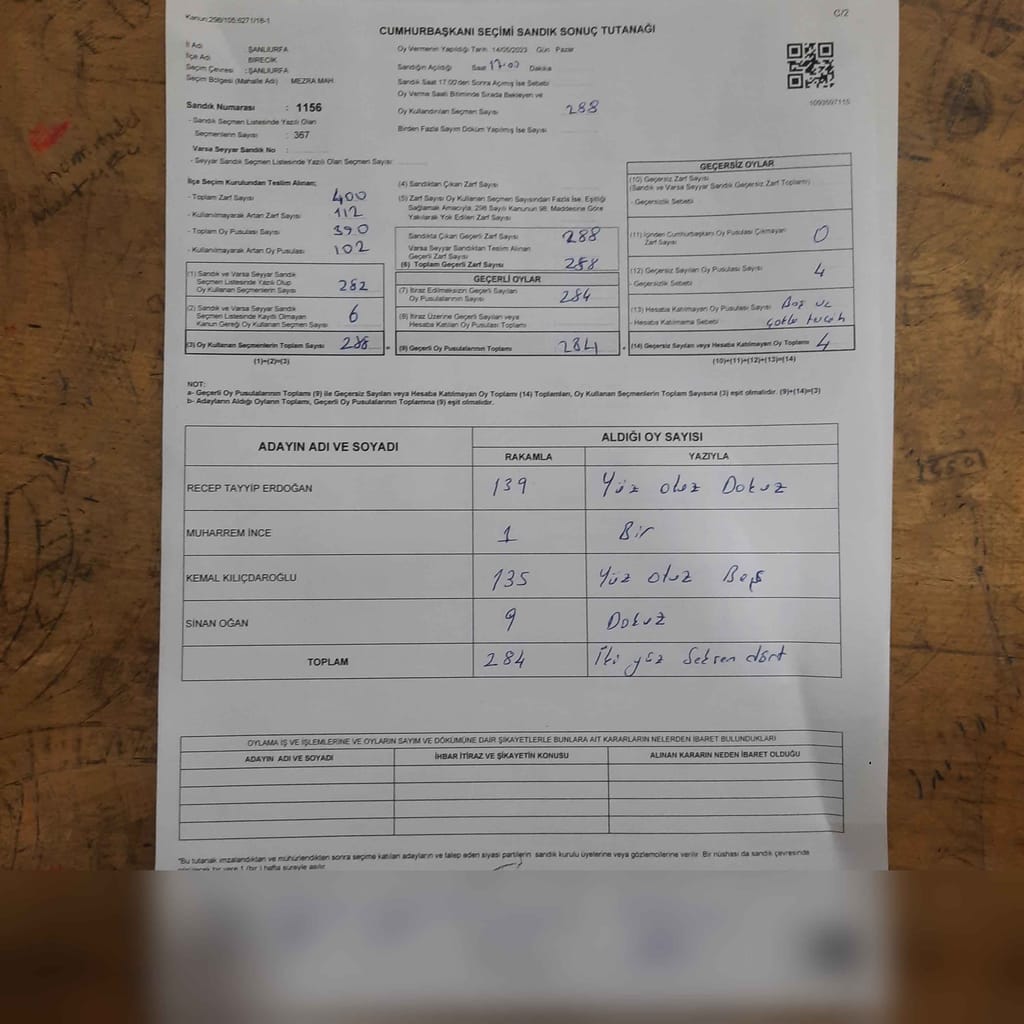 Kanun:298/105;6271/16-1
C/2
CUMHURBAŞKANI SEÇİMİ SANDIK SONUÇ TUTANAĞI
İl Adı : ŞANLIURFA
İlçe Adı : BİRECİK
Seçim Çevresi : ŞANLIURFA
Seçim Bölgesi (Mahalle Adı) : MEZRA MAH.
Sandık Numarası : 1156
- Sandık Seçmen Listesinde Yazılı Olan
Seçmenlerin Sayısı : 367
Varsa Seyyar Sandık No :
- Seyyar Sandık Seçmen Listesinde Yazılı Olan Seçmen Sayısı
Oy Vermenin Yapıldığı Tarih 14/05/2023 Gün Pazar
Sandığın Açıldığı Saat 17:00 Dakika
Sandık Saat 17:00'den Sonra Açılmış İse Sebebi
Oy Verme Saati Bitiminde Sırada Bekleyen ve
Oy Kullandırılan Seçmen Sayısı 288
Birden Fazla Sayım Döküm Yapılmış İse Sayısı
1093597115
İlçe Seçim Kurulundan Teslim Alınan;
- Toplam Zarf Sayısı 400
- Kullanılmayarak Artan Zarf Sayısı 112
- Toplam Oy Pusulası Sayısı 390
- Kullanılmayarak Artan Oy Pusulası 102
(1) Sandık ve Varsa Seyyar Sandık
Seçmen Listesinde Yazılı Olup
Oy Kullanan Seçmenlerin Sayısı 282
(2) Sandık ve Varsa Seyyar Sandık
Seçmen Listesinde Kayıtlı Olmayan
Kanun Gereği Oy Kullanan Seçmen Sayısı 6
(3) Oy Kullanan Seçmenlerin Toplam Sayısı 288
(1)+(2)=(3)
(4) Sandıktan Çıkan Zarf Sayısı
(5) Zarf Sayısı Oy Kullanan Seçmen Sayısından Fazla İse, Eşitliği
Sağlamak Amacıyla; 298 Sayılı Kanunun 98. Maddesine Göre
Yakılarak Yok Edilen Zarf Sayısı
Sandıkta Çıkan Geçerli Zarf Sayısı 288
Varsa Seyyar Sandıktan Teslim Alınan
Geçerli Zarf Sayısı
(6) Toplam Geçerli Zarf Sayısı 288
GEÇERLİ OYLAR
(7) İtiraz Edilmeksizin Geçerli Sayılan
Oy Pusulalarının Sayısı 284
(8) İtiraz Üzerine Geçerli Sayılan veya
Hesaba Katılan Oy Pusulası Toplamı
(9) Geçerli Oy Pusulalarının Toplamı 284
GEÇERSİZ OYLAR
(10) Geçersiz Zarf Sayısı
(Sandık ve Varsa Seyyar Sandık Geçersiz Zarf Toplamı)
- Geçersizlik Sebebi
(11) İçinden Cumhurbaşkanı Oy Pusulası Çıkmayan
Zarf Sayısı 0
(12) Geçersiz Sayılan Oy Pusulası Sayısı 4
- Geçersizlik Sebebi
(13) Hesaba Katılmayan Oy Pusulası Sayısı Boş ve
- Hesaba Katılmama Sebebi
(14) Geçersiz Sayılan veya Hesaba Katılmayan Oy Toplamı 4
(10)+(11)+(12)+(13)=(14)
NOT:
a- Geçerli Oy Pusulalarının Toplamı (9) ile Geçersiz Sayılan veya Hesaba Katılmayan Oy Toplamı (14) Toplamları, Oy Kullanan Seçmenlerin Toplam Sayısına (3) eşit olmalıdır. (9)+(14)=(3)
b- Adayların Aldığı Oyların Toplamı, Geçerli Oy Pusulalarının Toplamına (9) eşit olmalıdır.
ADAYIN ADI VE SOYADI ALDIĞI OY SAYISI
RAKAMLA YAZIYLA
RECEP TAYYİP ERDOĞAN 139 Yüz otuz Dokuz
MUHARREM İNCE 1 Bir
KEMAL KILIÇDAROĞLU 135 Yüz otuz Beş
SİNAN OĞAN 9 Dokuz
TOPLAM 284 İki yüz Seksen dört
OYLAMA İŞ VE İŞLEMLERİNE VE OYLARIN SAYIM VE DÖKÜMÜNE DAİR ŞİKAYETLERLE BUNLARA AİT KARARLARIN NELERDEN İBARET BULUNDUKLARI
ADAYIN ADI VE SOYADI İHBAR İTİRAZ VE ŞİKAYETİN KONUSU ALINAN KARARIN NEDEN İBARET OLDUĞU
*Bu tutanak imzalandıktan ve mühürlendikten sonra seçime katılan adayların ve talep eden siyasi partilerin sandık kurulu üyelerine veya gözlemcilerine verilir. Bir nüshası da sandık çevresinde
görülecek bir yere 1 (bir) hafta süreyle asılır.